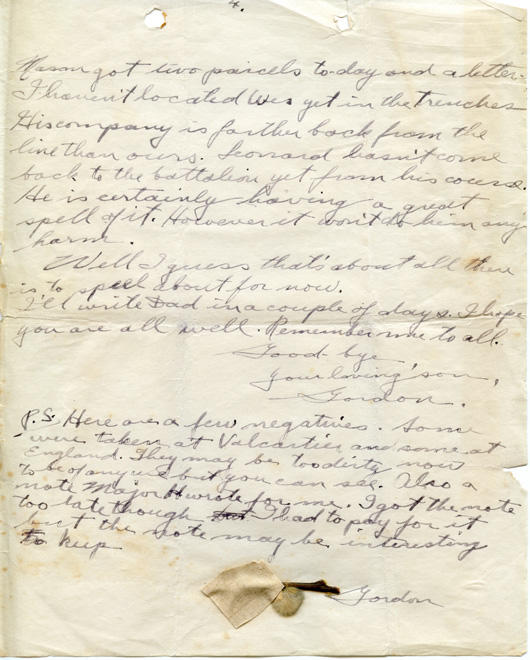 4.
Nason got two parcels to-day and a letter.
I haven't located Wes yet in the trenches
His company is farther back from the
line than ours. Leonard hasn't come
back to the battalion yet from his course.
He is certainly having a great
spell of it. However it won't do him any
harm.
Well I guess that's about all there
is to spell about for now.
I'll write Dad in a couple of days. I hope
you are all well. Remember me to all.
Good-bye
Your loving son,
Gordon.
P.S. Here are a few negatives. Some
were taken at Valcartier and some at
England. They may be too dirty now
to be of any use but you can see. Also a
note Major H wrote for me. I got the note
too late though I had to pay for it
but the note may be interesting
to keep
Gordon